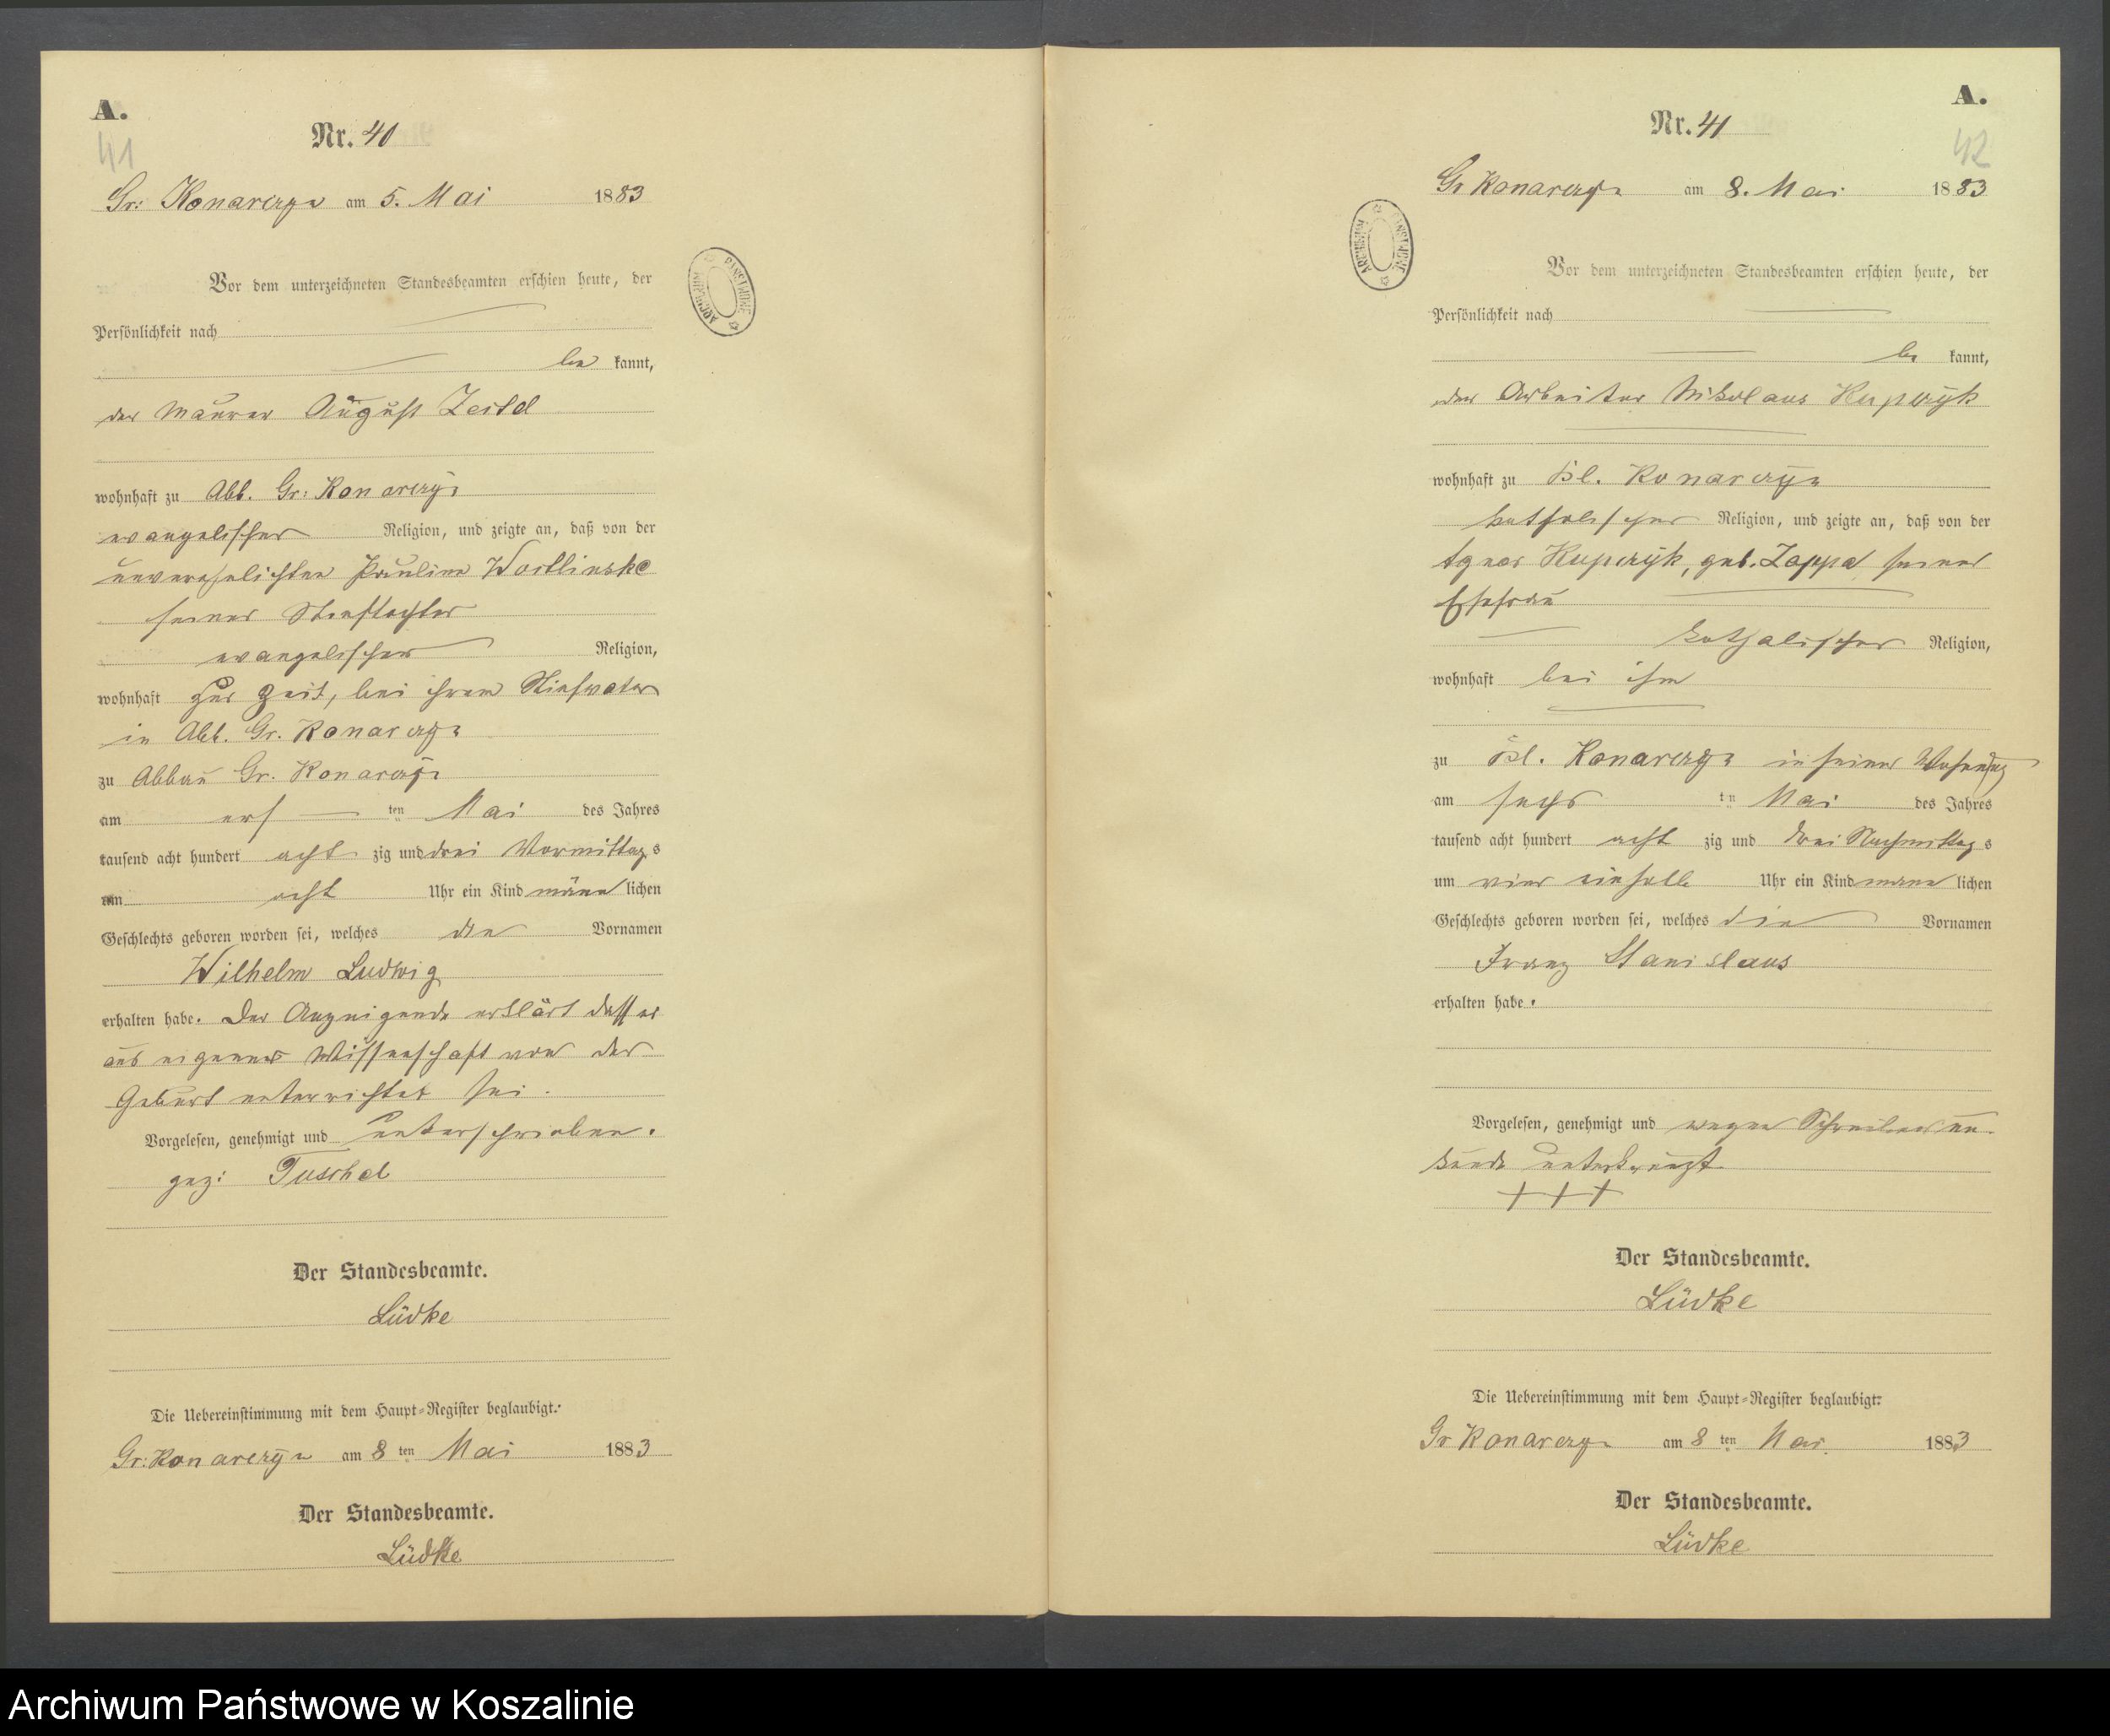 A.
41
Nr. 40
Gr: Konarczyn am 5. Mai 1883
ARCHIWUM PAŃSTWOWE
Vor dem unterzeichneten Standesbeamten erschien heute, der
Persönlichkeit nach
be kannt,
der Maurer August
wohnhaft zu Abb. Gr: Konarczyn
evangelischer Religion, und zeigte an, daß von der
unverehelichten Pauline
seiner Stieftochter
evangelischer Religion,
wohnhaft zur Zeit, bei ihrem Stiefvater
in Abb. Gr. Konarczyn
zu Abbau Gr. Konarczyn
am erst ten Mai des Jahres
tausend acht hundert acht zig und drei Vormittags
um acht Uhr ein Kind männlichen
Geschlechts geboren worden sei, welches den Vornamen
Wilhelm Ludwig
erhalten habe. Der Anzeigende erklärt daß er
aus eigener Wissenschaft von der
Geburt unterrichtet sei.
Vorgelesen, genehmigt und unterschrieben.
gez: Tuschel
Der Standesbeamte.
Lüdke
Die Uebereinstimmung mit dem Haupt-Register beglaubigt.
Gr: Konarczyn am 8 ten Mai 1883
Der Standesbeamte.
Lüdke
A.
42
Nr. 41
Gr Konarczyn am 8. Mai 1883
ARCHIWUM PAŃSTWOWE
Vor dem unterzeichneten Standesbeamten erschien heute, der
Persönlichkeit nach
be kannt,
der Arbeiter Nikolaus Kupczyk
wohnhaft zu Kl. Konarczyn
katholischer Religion, und zeigte an, daß von der
Agnes Kupczyk, geb. Zappa seiner
Ehefrau
katholischer Religion,
wohnhaft bei ihm
zu Kl. Konarczyn in seiner Wohnung
am sechs ten Mai des Jahres
tausend acht hundert acht zig und drei Nachmittags
um vier einhalb Uhr ein Kind männlichen
Geschlechts geboren worden sei, welches die Vornamen
Franz Stanislaus
erhalten habe.
Vorgelesen, genehmigt und wegen Schreibens un-
kunde unterkreuzt
+++
Der Standesbeamte.
Lüdke
Die Uebereinstimmung mit dem Haupt-Register beglaubigt:
Gr Konarczyn am 8 ten Mai. 1883
Der Standesbeamte.
Lüdke
Archiwum Państwowe w Koszalinie